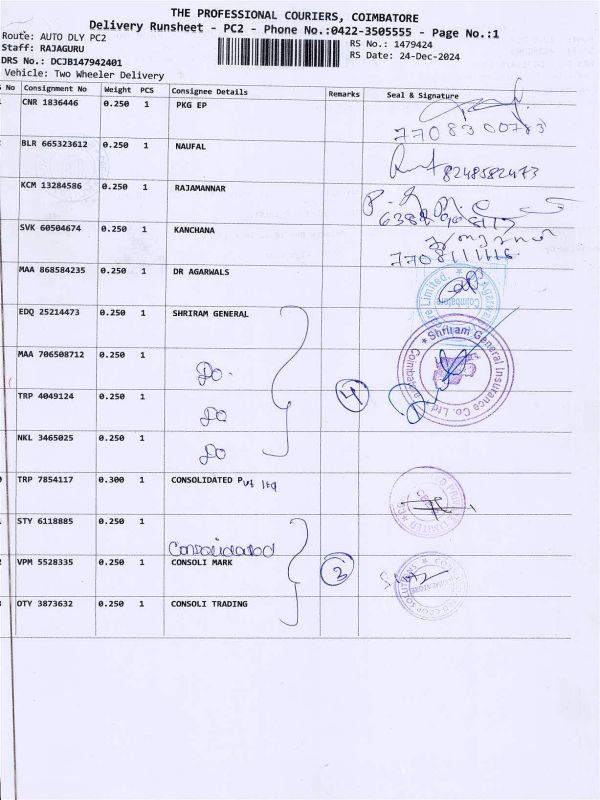 THE PROFESSIONAL COURIERS, COIMBATORE
Delivery Runsheet - PC2 - Phone No.:0422-3505555 - Page No.:1
Route: AUTO DLY PC2
Staff: RAJAGURU
RS No.: 1479424
DRS No.: DCJB147942401
RS Date: 24-Dec-2024
Vehicle: Two Wheeler Delivery
No Consignment No Weight PCS Consignee Details Remarks Seal & Signature
CNR 1836446 0.250 1 PKG EP
7708300783
BLR 665323612 0.250 1 NAUFAL
8248582473
KCM 13284586 0.250 1 RAJAMANNAR
SVK 60504674 0.250 1 KANCHANA
MAA 868584235 0.250 1 DR AGARWALS
Coimbatore
EDQ 25214473 0.250 1 SHRIRAM GENERAL
Shriram General Insurance Co. Ltd
MAA 706508712 0.250 1 DO
4
TRP 4049124 0.250 1 DO
NKL 3465025 0.250 1 DO
TRP 7854117 0.300 1 CONSOLIDATED Pvt ltd
STY 6118885 0.250 1 Consolidated
VPM 5528335 0.250 1 CONSOLI MARK
3
OTY 3873632 0.250 1 CONSOLI TRADING